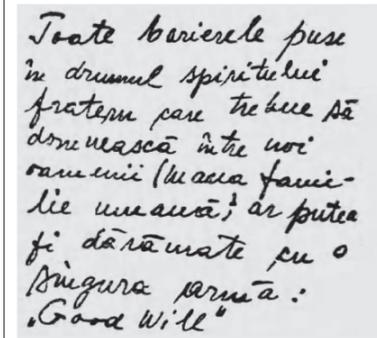 Toate barierele puse
în drumul spiritului
fratern care trebue să
domnească între noi
oamenii (marea fami-
lie umană) ar putea
fi dărâmate cu o
singura armă:
„Good Will"